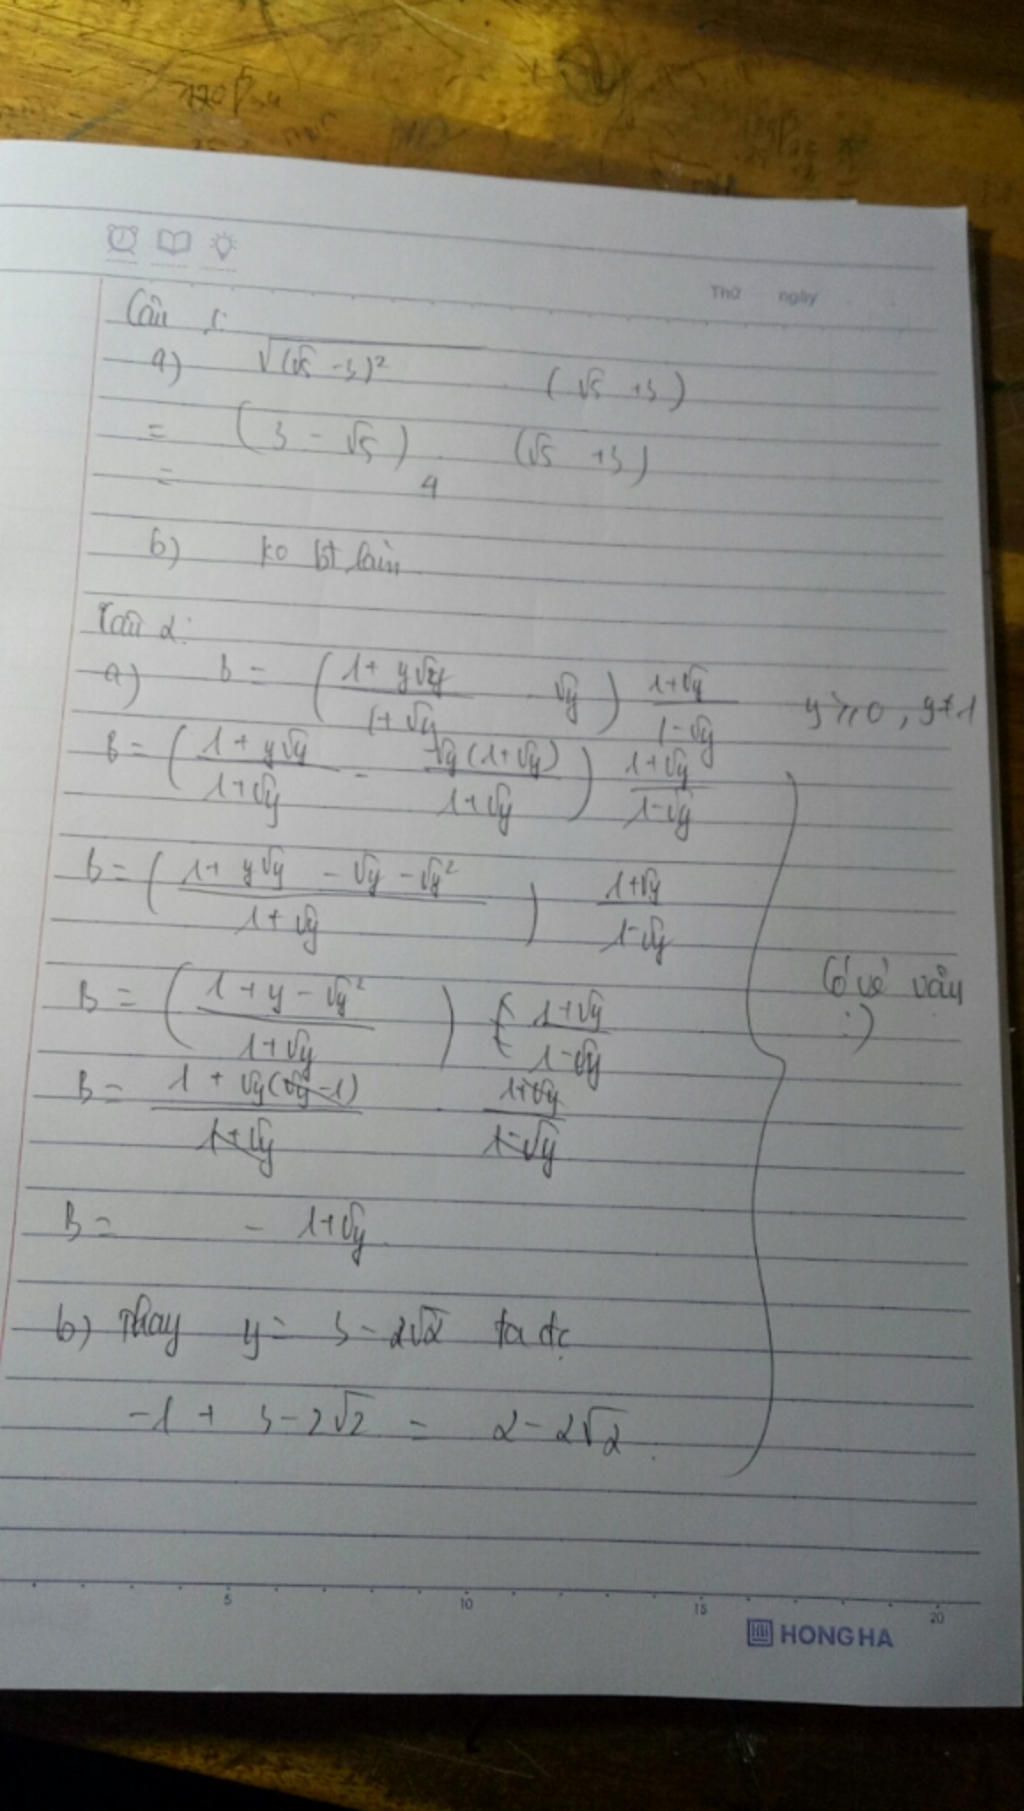 Thứ ngày
Câu 1:
a) √(√5 - 3)² (√5 + 3)
= (3 - √5) (√5 + 3)
= 4
b) ko bt làm
Câu 2:
a) B = ((1 + y√y)/(1 + √y) - √y) (1 + √y)/(1 - √y) y ≥ 0, y ≠ 1
B = ((1 + y√y)/(1 + √y) - √y(1 + √y)/(1 + √y)) (1 + √y)/(1 - √y)
B = ((1 + y√y - √y - √y²)/(1 + √y)) (1 + √y)/(1 - √y)
B = ((1 + y - √y²)/(1 + √y)) (1 + √y)/(1 - √y)
Có vẻ vậy :)
B = (1 + √y(√y - 1))/(1 + √y) · (1 + √y)/(1 - √y)
B = - 1 + √y
b) Thay y = 3 - 2√2 ta đc
-1 + 3 - 2√2 = 2 - 2√2.
5 10 15 20
HONG HA